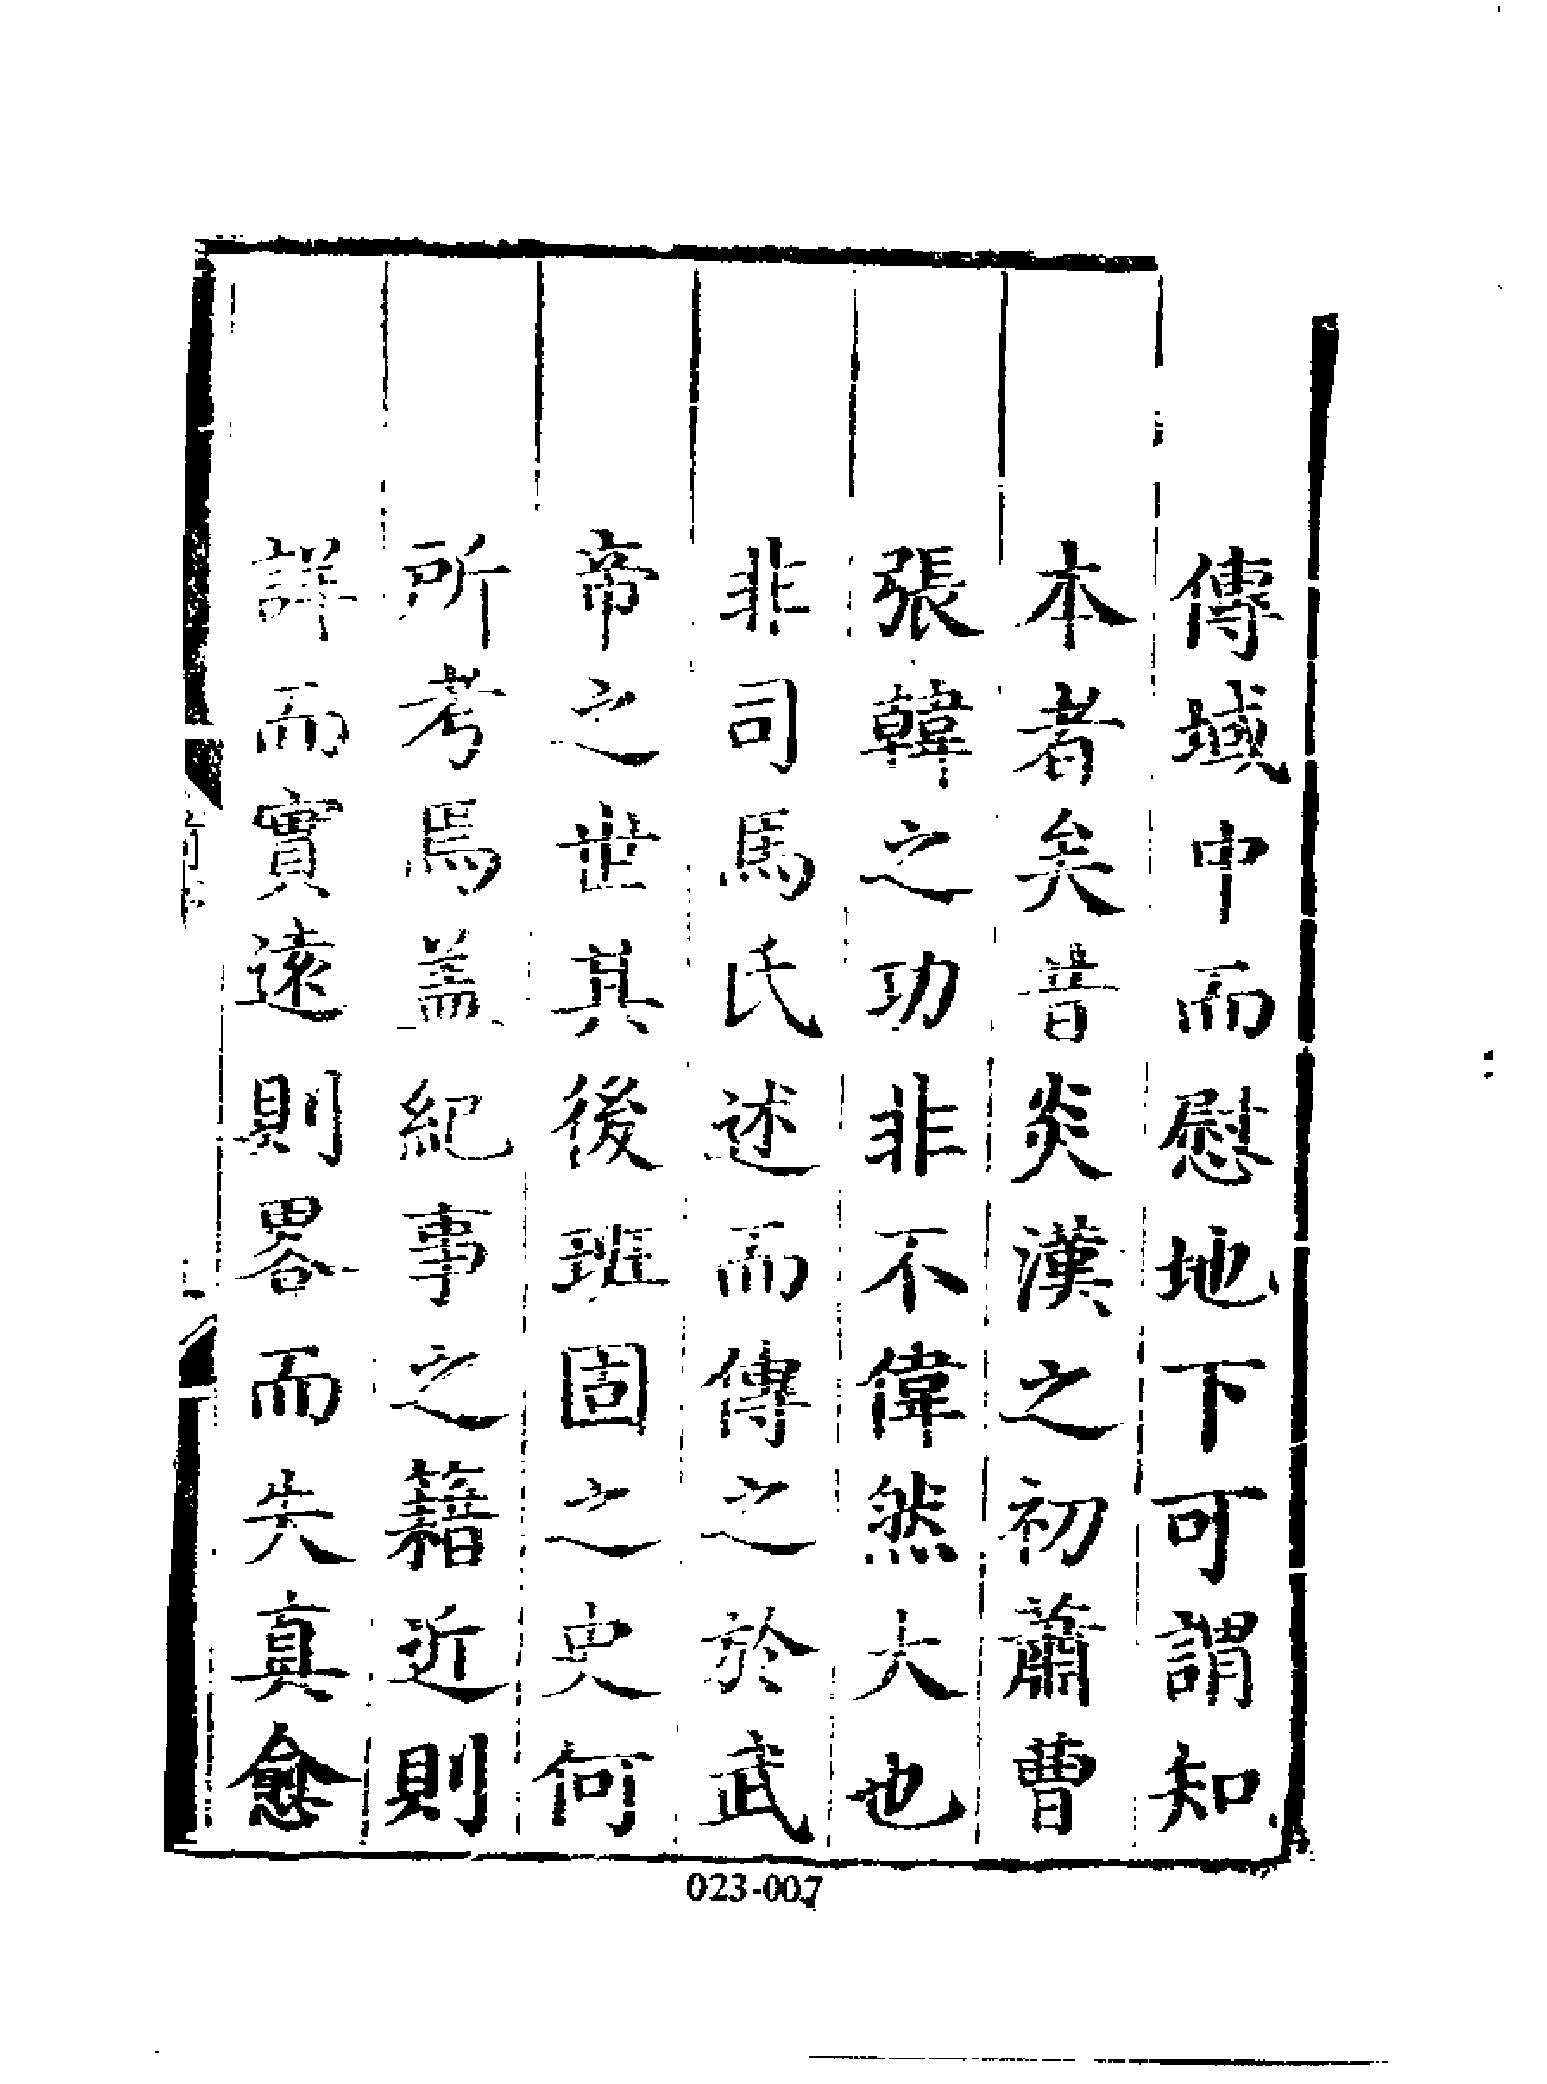 傳域中而慰地下可謂知
本者矣昔炎漢之初蕭曹
張韓之功非不偉然大也
非司馬氏述而傳之於武
帝之世其後班固之史何
所考焉蓋紀事之籍近則
詳而實遠則畧而失真愈
023-007